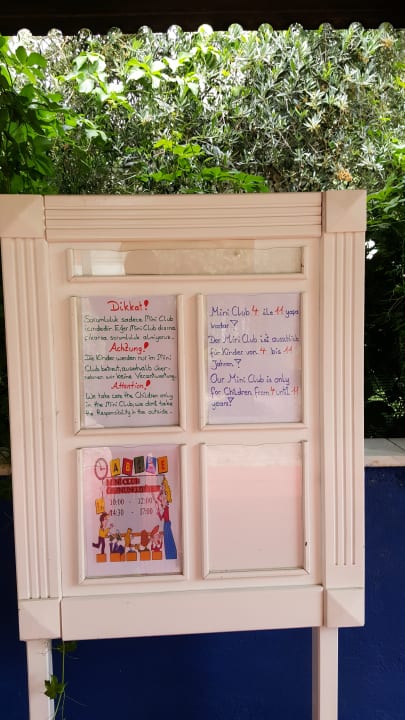 Dikkat!
Sorumluluk sadece Mini Club
icindedir. Eğer Mini Club disina
çikarsa sorumluluk almiyoruz.
Achtung!
Die Kinder werden nur im Mini
Club betreut, ausserhalb über-
nehmen wir keine Verantwortung.
Attention!
We take care the Children only
in the Mini Club, we dont take
the Responsibility in the outside.
Mini Club 4 ile 11 yaşa
kadar!
Der Mini Club ist
für Kinder von 4 bis 11
Jahren!
Our Mini Club is only
for Children from 4 until 11
years!
MINI CLUB
10:00 - 12:00
14:30 - 17:00